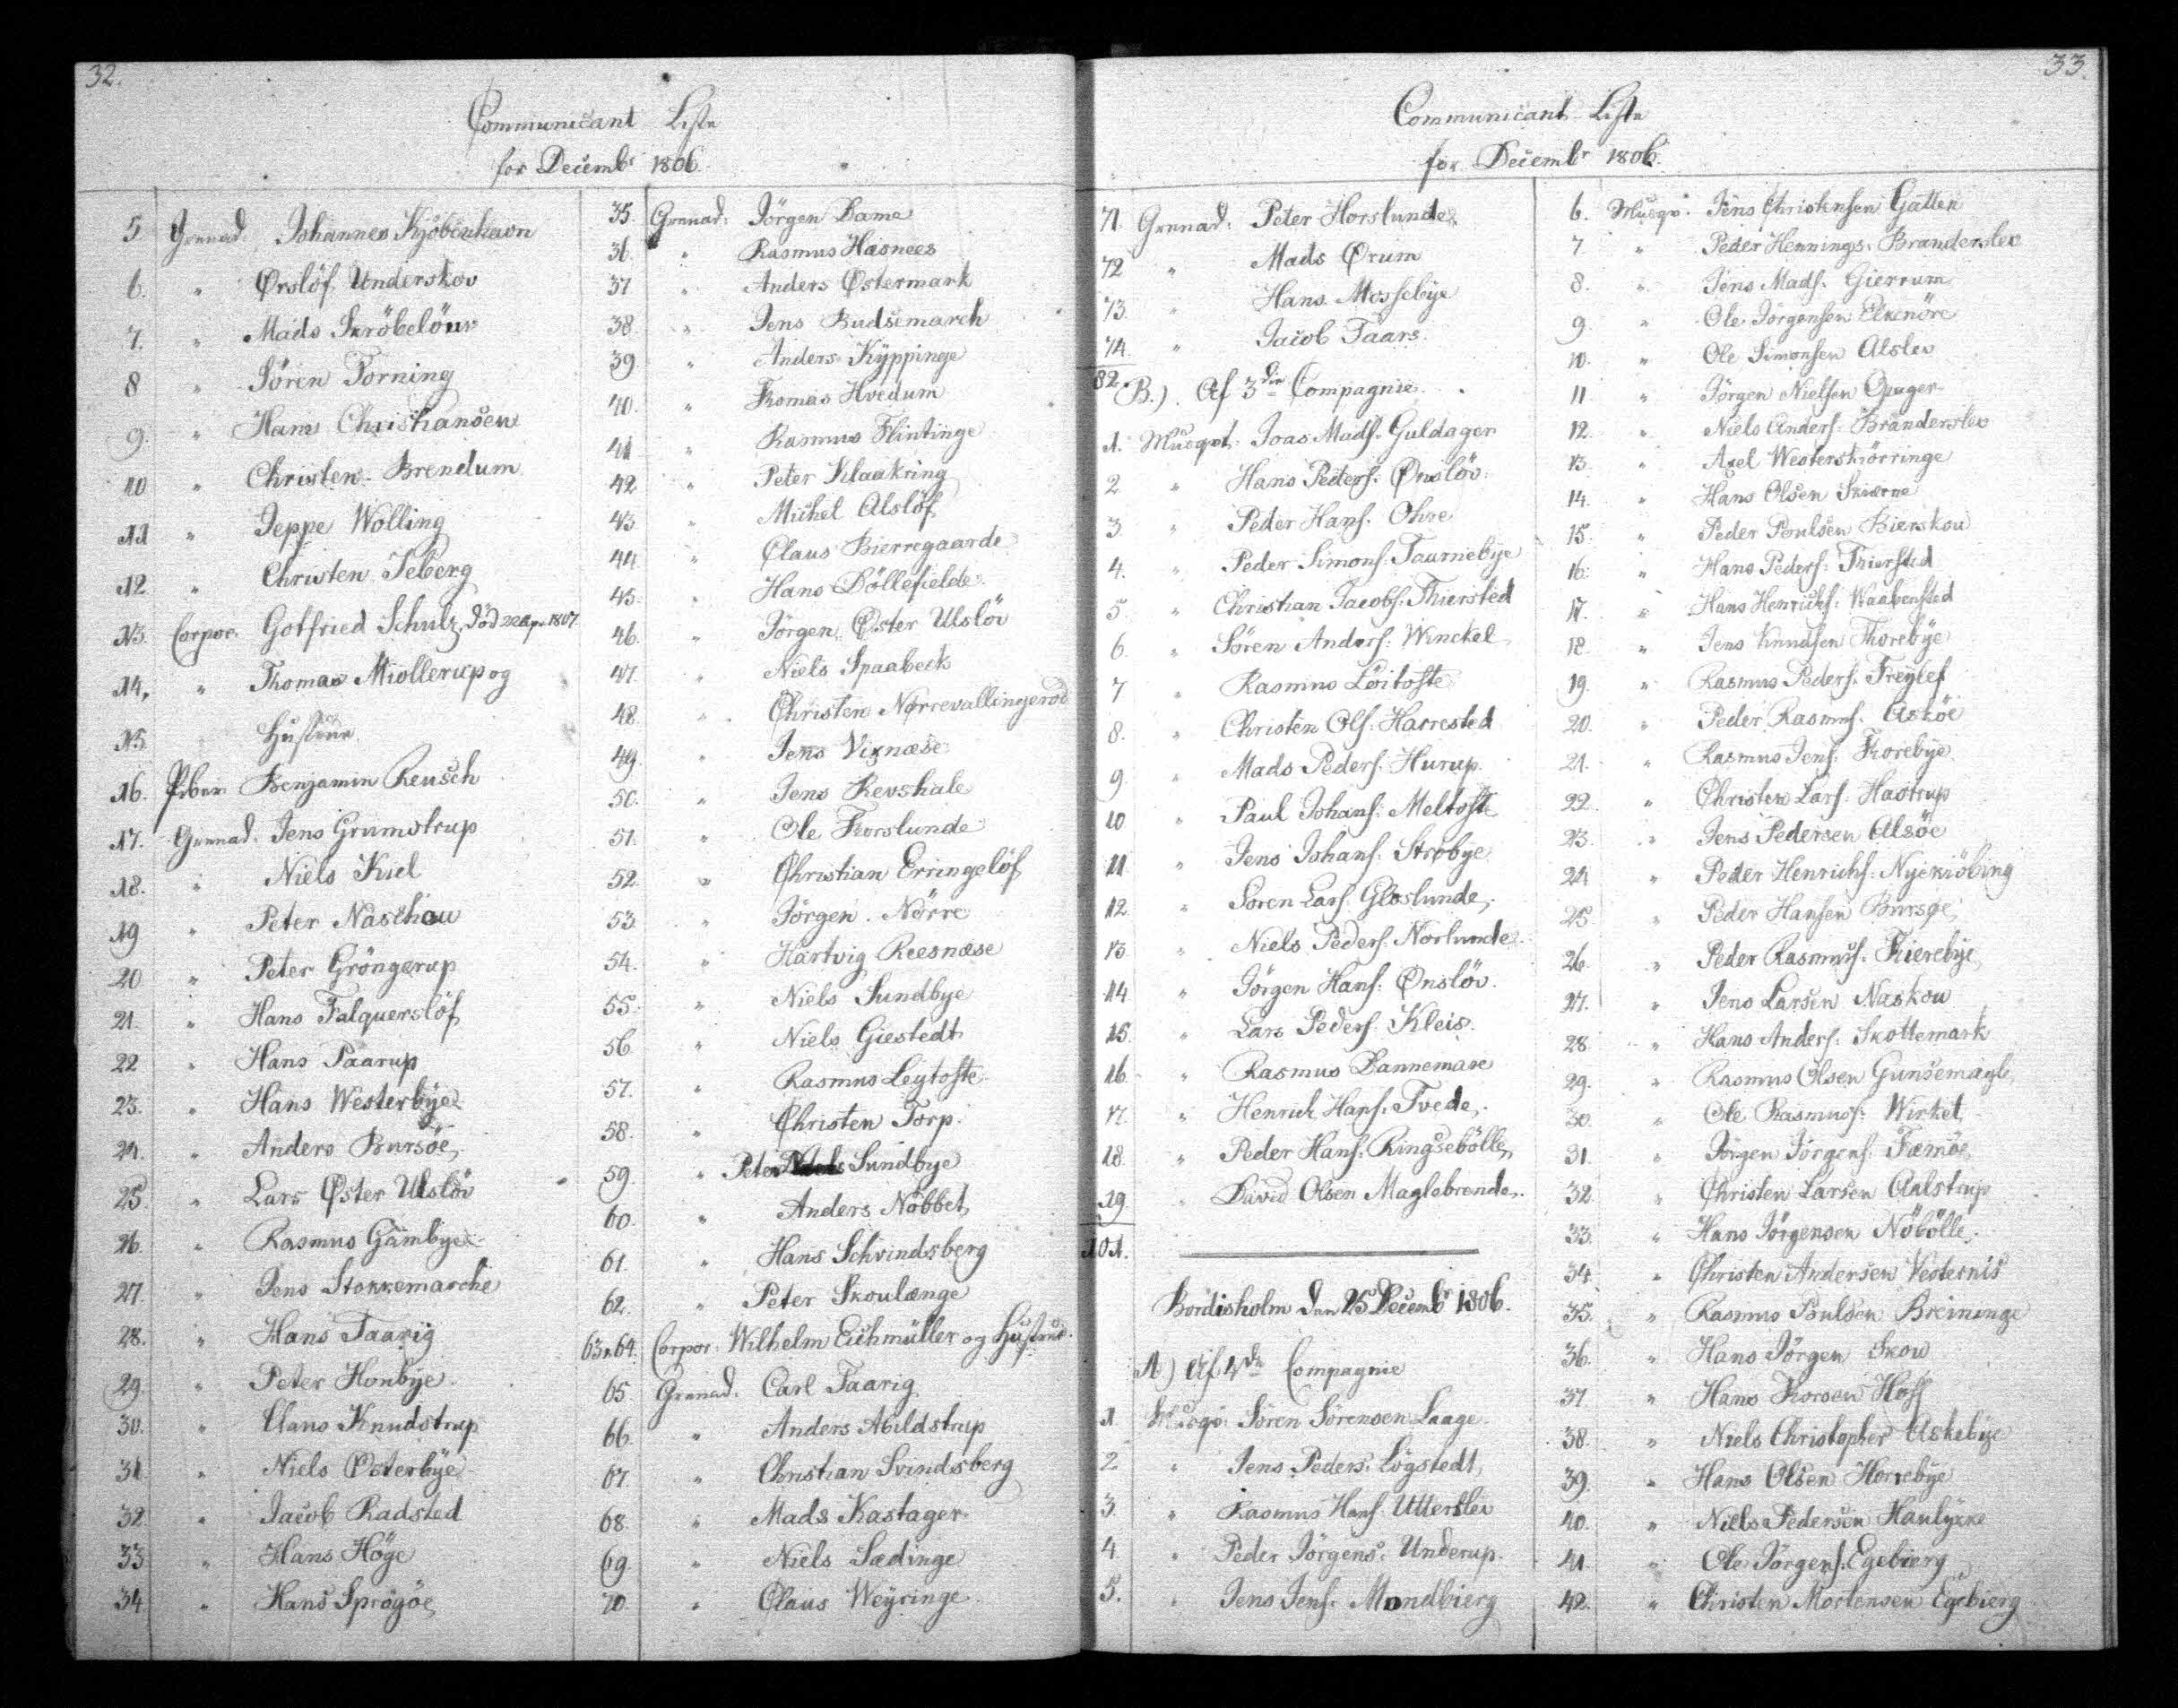 32.
Communicant Liste
for Decembr 1806.
5. Grenad. Johannes Kjöbenhavn
6. " Ørslöf Underskov
7. " Mads Skröbelöuv
8 " Sören Torning
9. " Hans Christiansen
10 " Christen Brendum
11 " Jeppe Wolling
12 " Christen Seberg
13. Corpor. Gotfried Schulz, död 22 Apr. 1807.
14. " Thomas Miollerup og
15. Hustrue
16. Benjamin Reusch
17. Grenad. Jens Grumstrup
18. " Niels Kiel
19 " Peter Naschou
20 " Peter Gröngerup
21. " Hans Falquerslöf
22 " Hans Paarup
23. " Hans Westerbye
24. " Anders Bursöe
25. " Lars Øster Ulslöv
26. " Rasmus Gambye
27. " Jens Stokkemarche
28. " Hans Taarig
29. " Peter Honbye
30. " Claus Knudstrup
31 " Niels Østerbye
32. " Jacob Radsted
33 " Hans Höge
34. " Hans Sprogöe
35. Grenad: Jörgen Dame
36. " Rasmus Hasnees
37 " Anders Østermark
38. " Jens Budsemarch
39 " Anders Kyppinge
40. " Thomas Hvedum
41 " Rasmus Flintinge
42. " Peter Klaakring
43. " Michel Alslöf
44 " Claus Bierregaarde
45. " Hans Döllefielde
46. " Jörgen Øster Ulslöv
47. " Niels Spaabeck
48. " Christen Nørrevallingerod
49. " Jens Vixnæse
50. " Jens Revshale
51. " Ole Thorslunde
52. " Christian Erringelöf
53. " Jörgen Nörre
54. " Hartvig Reesnæse
55. " Niels Sundbye
56. " Niels Giestedt
57. " Rasmus Leytofte
58. " Christen Torp.
59. " Peter Sundbye
60. " Anders Nöbbet
61. " Hans Schvindsberg
62. " Peter Skoulænge
63 & 64. Corpor. Wilhelm Eichmüller og Hustrue.
65. Grenad. Carl Taarig
66. " Anders Abildstrup
67. " Christian Svindsberg
68. " Mads Kastager
69. " Niels Sædinge
70. " Claus Weyringe
33.
Communicant Liste
for Decembr 1806.
71. Grenad: Peter Horslunde
72 " Mads Ørum
73. " Hans Mossebye
74. " Jacob Taars
82. B.) Af 3die Compagnie.
1. Musqvt. Joas Mads: Guldager
2 " Hans Peders: Ønslöv
3. " Peder Hans: Ohre
4. " Peder Simons: Taarnebye
5 " Christian Jacobs: Thiersted
6. " Sören Anders: Winckel
7 " Rasmus Löitofte
8. " Christen Ols: Harrested
9. " Mads Peders: Hurup
10 " Paul Johans: Meltofte
11 " Jens Johans: Strøbye
12. " Soren Lars: Gloslunde
13. " Niels Peders: Norlunde
14 " Jörgen Hans: Ønslöv
15. " Lars Peders: Kleis
16. " Rasmus Dannemare
17. " Henrich Hans: Tvede
18. " Peder Hans: Ringsebölle
19 " David Olsen Maglebrende
101.
Bordisholm den 25 Decembr 1806.
A.) Af 4de Compagnie
1. Musqv: Sören Sörensen Laage
2 " Jens Peders: Lögstedt
3. " Rasmus Hans: Utterslev
4. " Peder Jörgens: Underup
5. " Jens Jens: Mondbierg
6. Musqv. Jens Christensen Gatten
7 " Peder Hennings: Branderslev
8. " Jens Mads: Gierrum
9. " Ole Jörgensen Elkenöre
10. " Ole Simonsen Alslev
11 " Jörgen Nielsen Opager
12. " Niels Anders: Branderslev
13. " Axel Westerskiörringe
14. " Hans Olsen Skierne
15. " Peder Poulsen Bierskou
16. " Hans Peders: Thiersted
17. " Hans Henrichs: Waabensted
18. " Jens Knudsen Thorebye
19. " Rasmus Peders: Freylef
20. " Peder Rasmus: Asköe
21. " Rasmus Jens: Thorebye
22. " Christen Lars: Hastrup
23. " Jens Pedersen Alsöe
24 " Peder Henrichs: Nyekiöbing
25. " Peder Hansen Bursøe
26. " Peder Rasmus: Kierebye
27. " Jens Larsen Naskou
28. " Hans Anders: Skottemark
29. " Rasmus Olsen Gunsemagle
30. " Ole Rasmus: Wirket
31. " Jörgen Jörgens: Fæmöe
32. " Christen Larsen Aalstrup
33. " Hans Jörgensen Nöbölle
34. " Christen Andersen Vesternis
35. " Rasmus Poulsen Breininge
36. " Hans Jörgen Skou
37. " Hans Thorsen Hoff
38. " Niels Christopher Askebye
39. " Hans Olsen Horrebye
40. " Niels Pedersen Haulykke
41. " Ole Jörgens: Egebierg
42. " Christen Mortensen Egebierg